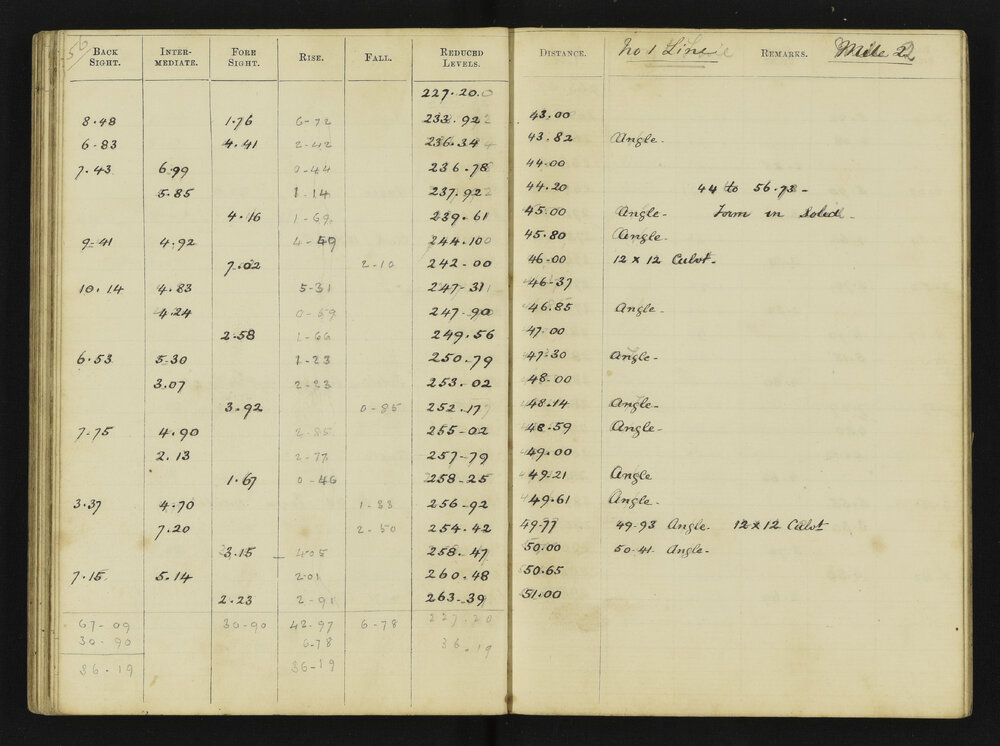 56
BACK SIGHT. INTER-MEDIATE. FORE SIGHT. RISE. FALL. REDUCED LEVELS. DISTANCE. No 1 Line REMARKS. Mile 2
227.20
8.48 1.76 6-72 233.92 43.00
6.83 4.41 2-42 236.34 43.82 Angle.
7.43 6.99 0-44 236.78 44.00
5.85 1-14 237.92 44.20 44 to 56.73-
4.16 1-69 239.61 45.00 Angle- Form in Solid-
9-41 4.92 4-49 244.10 45.80 Angle.
7.02 2-10 242-00 46-00 12 x 12 Culvt-
10.14 4.83 5-31 247-31 46-37
4.24 0-59 247-90 46.85 Angle-
2.58 1-66 249.56 47.00
6.53 5.30 1-23 250-79 47-30 Angle-
3.07 2-23 253-02 48-00
3.92 0-85 252.17 48.14 Angle-
7-75 4.90 2-85 255-02 48-59 Angle-
2.13 2-77 257-79 49.00
1.67 0-46 258-25 49-21 Angle
3.37 4.70 1-33 256-92 49.61 Angle-
7.20 2-50 254.42 49-77 49-93 Angle. 12x12 Culvt
3.15 4.05 258.47 50.00 50.41 Angle-
7.15 5.14 2.01 260.48 50.65
2.23 2-91 263-39 51.00
67-09 30-90 42-97 6-78 227.20
30-90 6-78 36.19
36-19 36-19